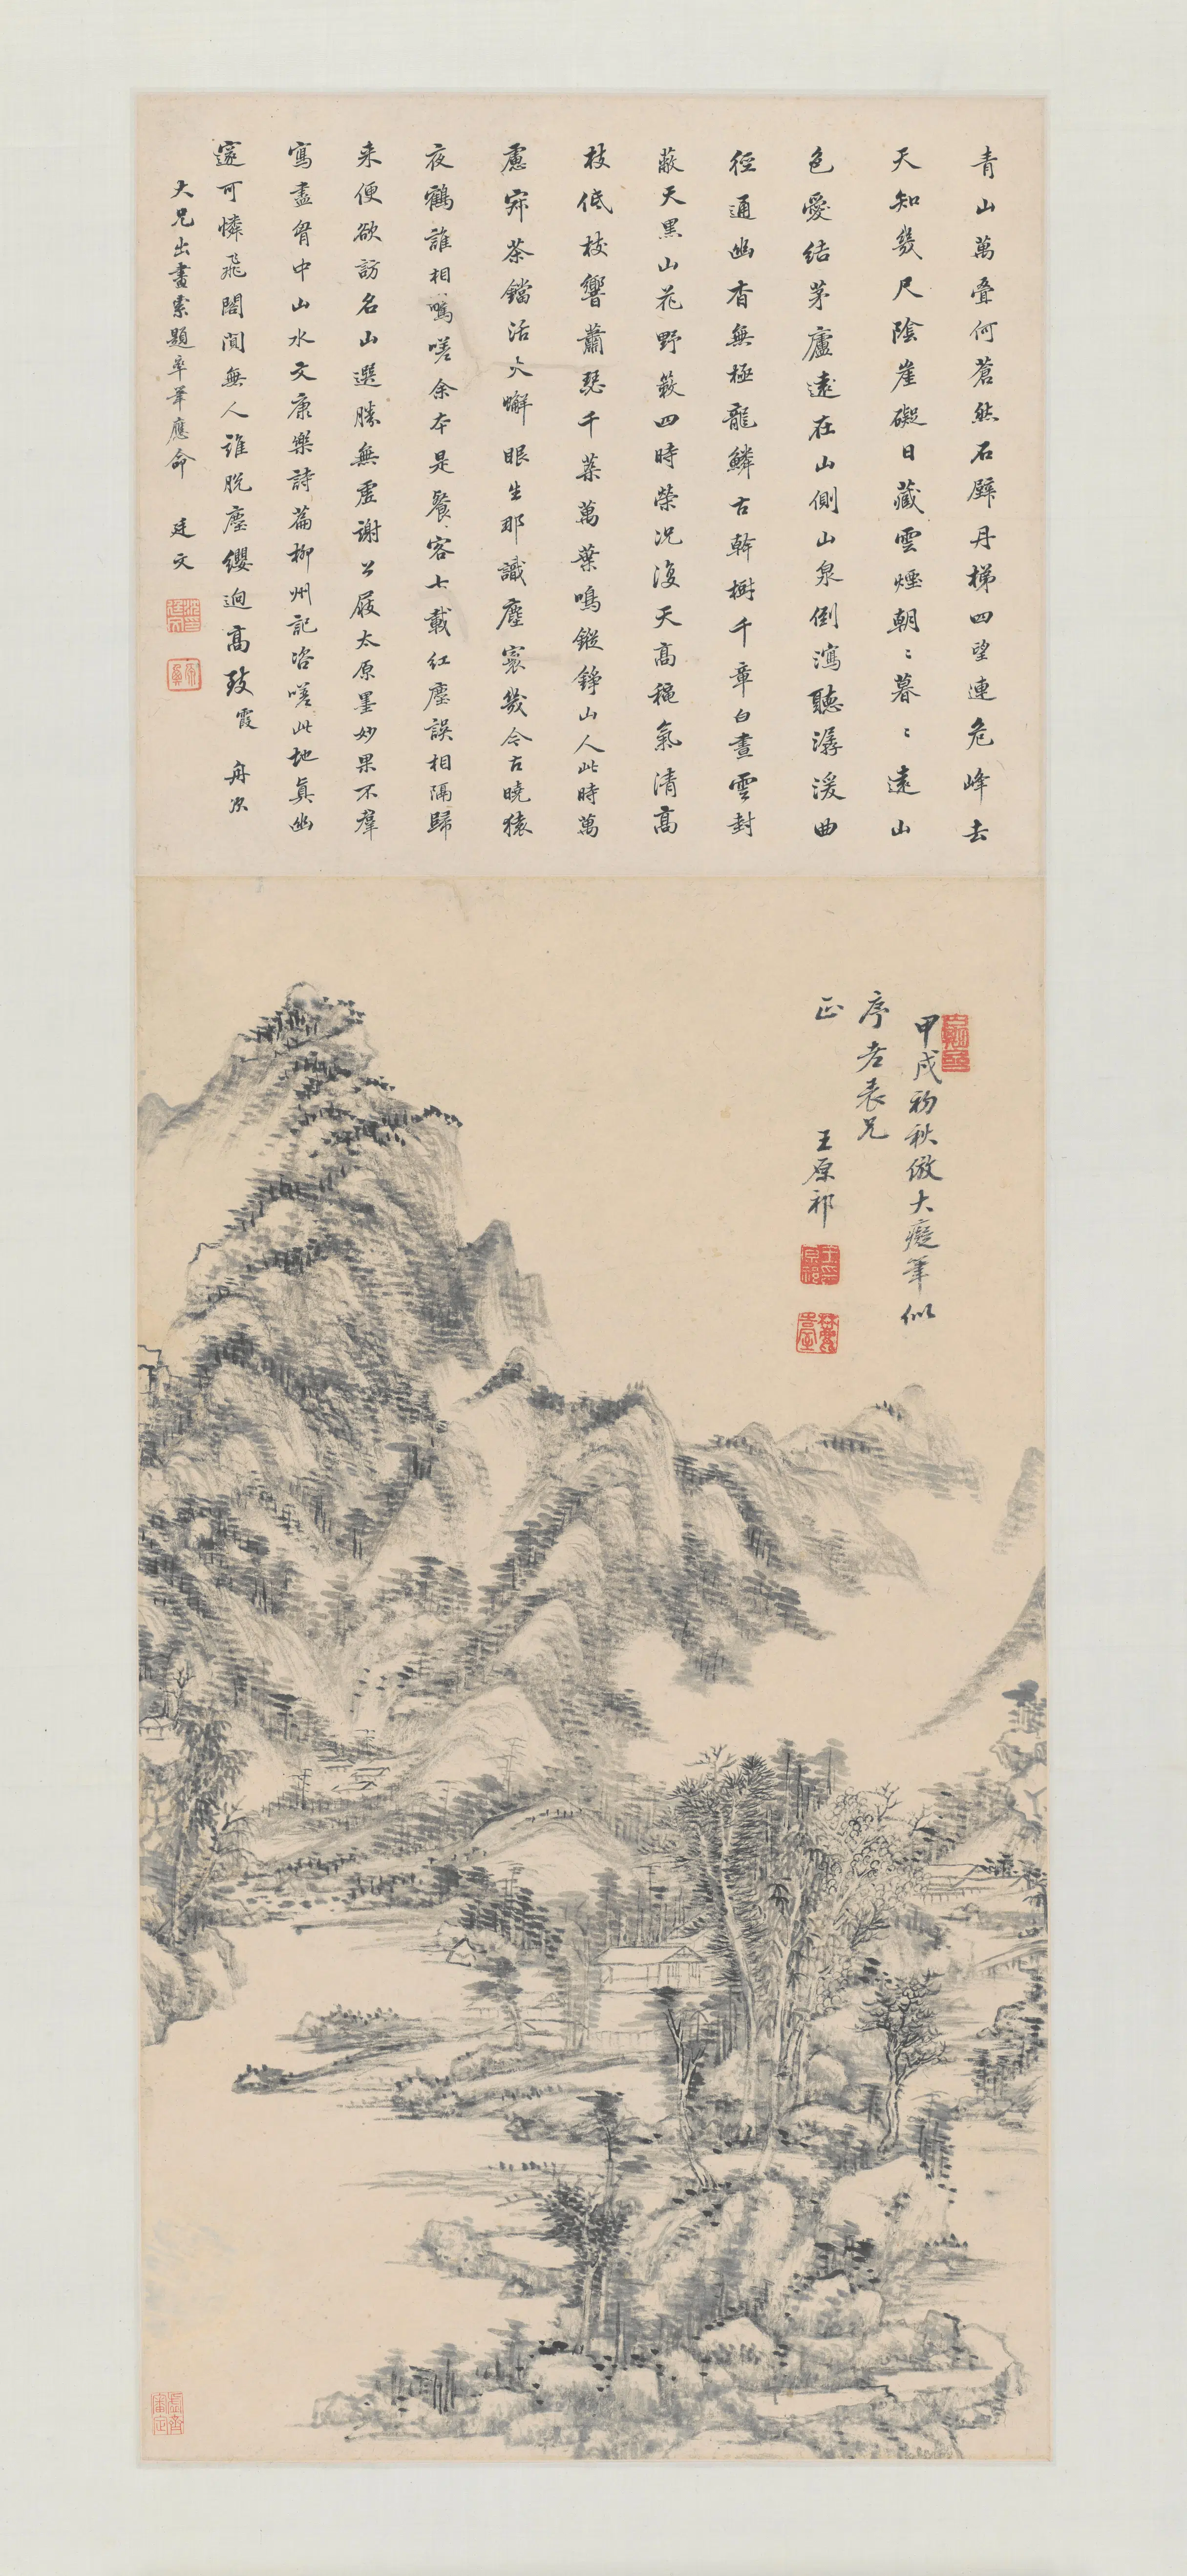 青山萬疊何蒼然石壁丹梯四望連危峰去
天知幾尺陰崖礙日藏雲煙朝〻暮〻遠山
色愛結茅廬遠在山側山泉倒瀉聽潺湲曲
徑通幽杳無極龍鱗古幹樹千章白晝雲封
蔽天黑山花野蔌四時榮況復天高穐氣清高
枝低枝響蕭瑟千葉萬葉鳴鏦錚山人此時萬
慮寂茶鐺活火蠏眼生那識塵寰幾今古曉猿
夜鶴誰相驚嗟余本是餐客七載紅塵誤相隔歸
来便欲訪名山選勝無虛謝公屐太原墨妙果不羣
寫盡胷中山水文康樂詩篇柳州記咨嗟此地真幽
邃可憐飛閣閴無人誰脫塵纓迥高致霞舟次
大兄出畫索題率筆應命 廷文
甲戌初秋倣大癡筆似
序老表兄
正 王原祁
王原祁印